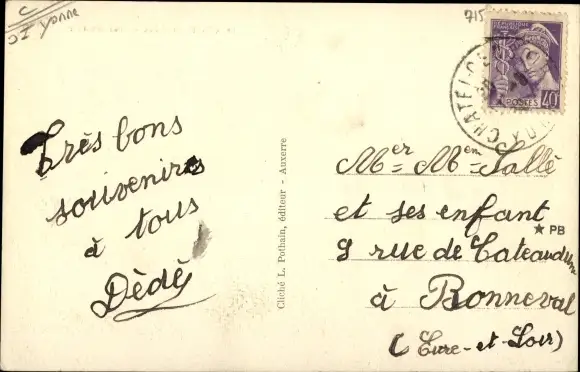 C
St Yonne
715
RÉPUBLIQUE FRANÇAISE
POSTES 40
CHATEL-CE
Très bons
souvenirs
à tous
Dèdè
Cliché L. Pothain, éditeur - Auxerre
Mer = Men = Sallé
et ses enfant
★ PB
9 rue de Cateaudun
à Bonneval
(Eure-et-Loir)